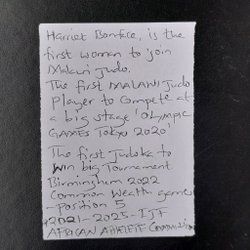 Harriet Bonface, is the
first woman to join
Malawi Judo.
The first MALAWI Judo
Player to Compete at
a big stage 'OLYMPIC
GAMES Tokyo 2020'
The first Judoka to
win big Tournament
Birmingham 2022
Common Wealth games
- position 5
2021-2025-IJF
AFRICAN ATHLETE Commission